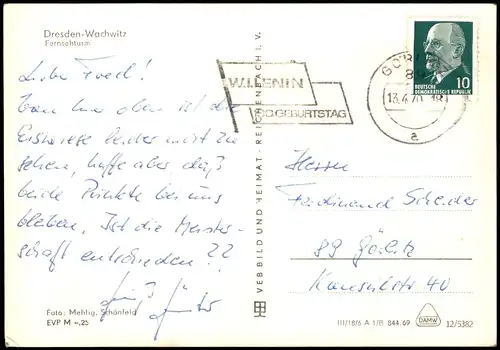 Dresden-Wachwitz
Fernsehturm
Lieber Fred!
Von hier oben ist die
Eiswiese leider nicht zu
sehen, hoffe aber, daß
beide Punkte bei uns
bleiben. Ist die Meister-
schaft entschieden??
Foto: Mehlig, Schönfeld
EVP M –,25
VEB BILD UND HEIMAT · REICHENBACH I. V.
W.I. LENIN
100. GEBURTSTAG
13.4.70
a
DEUTSCHE
DEMOKRATISCHE REPUBLIK
10
Herrn
Ferdinand
89 Görlitz
40
III/18/6 A 1/B 844/69
DAMW
12/5382